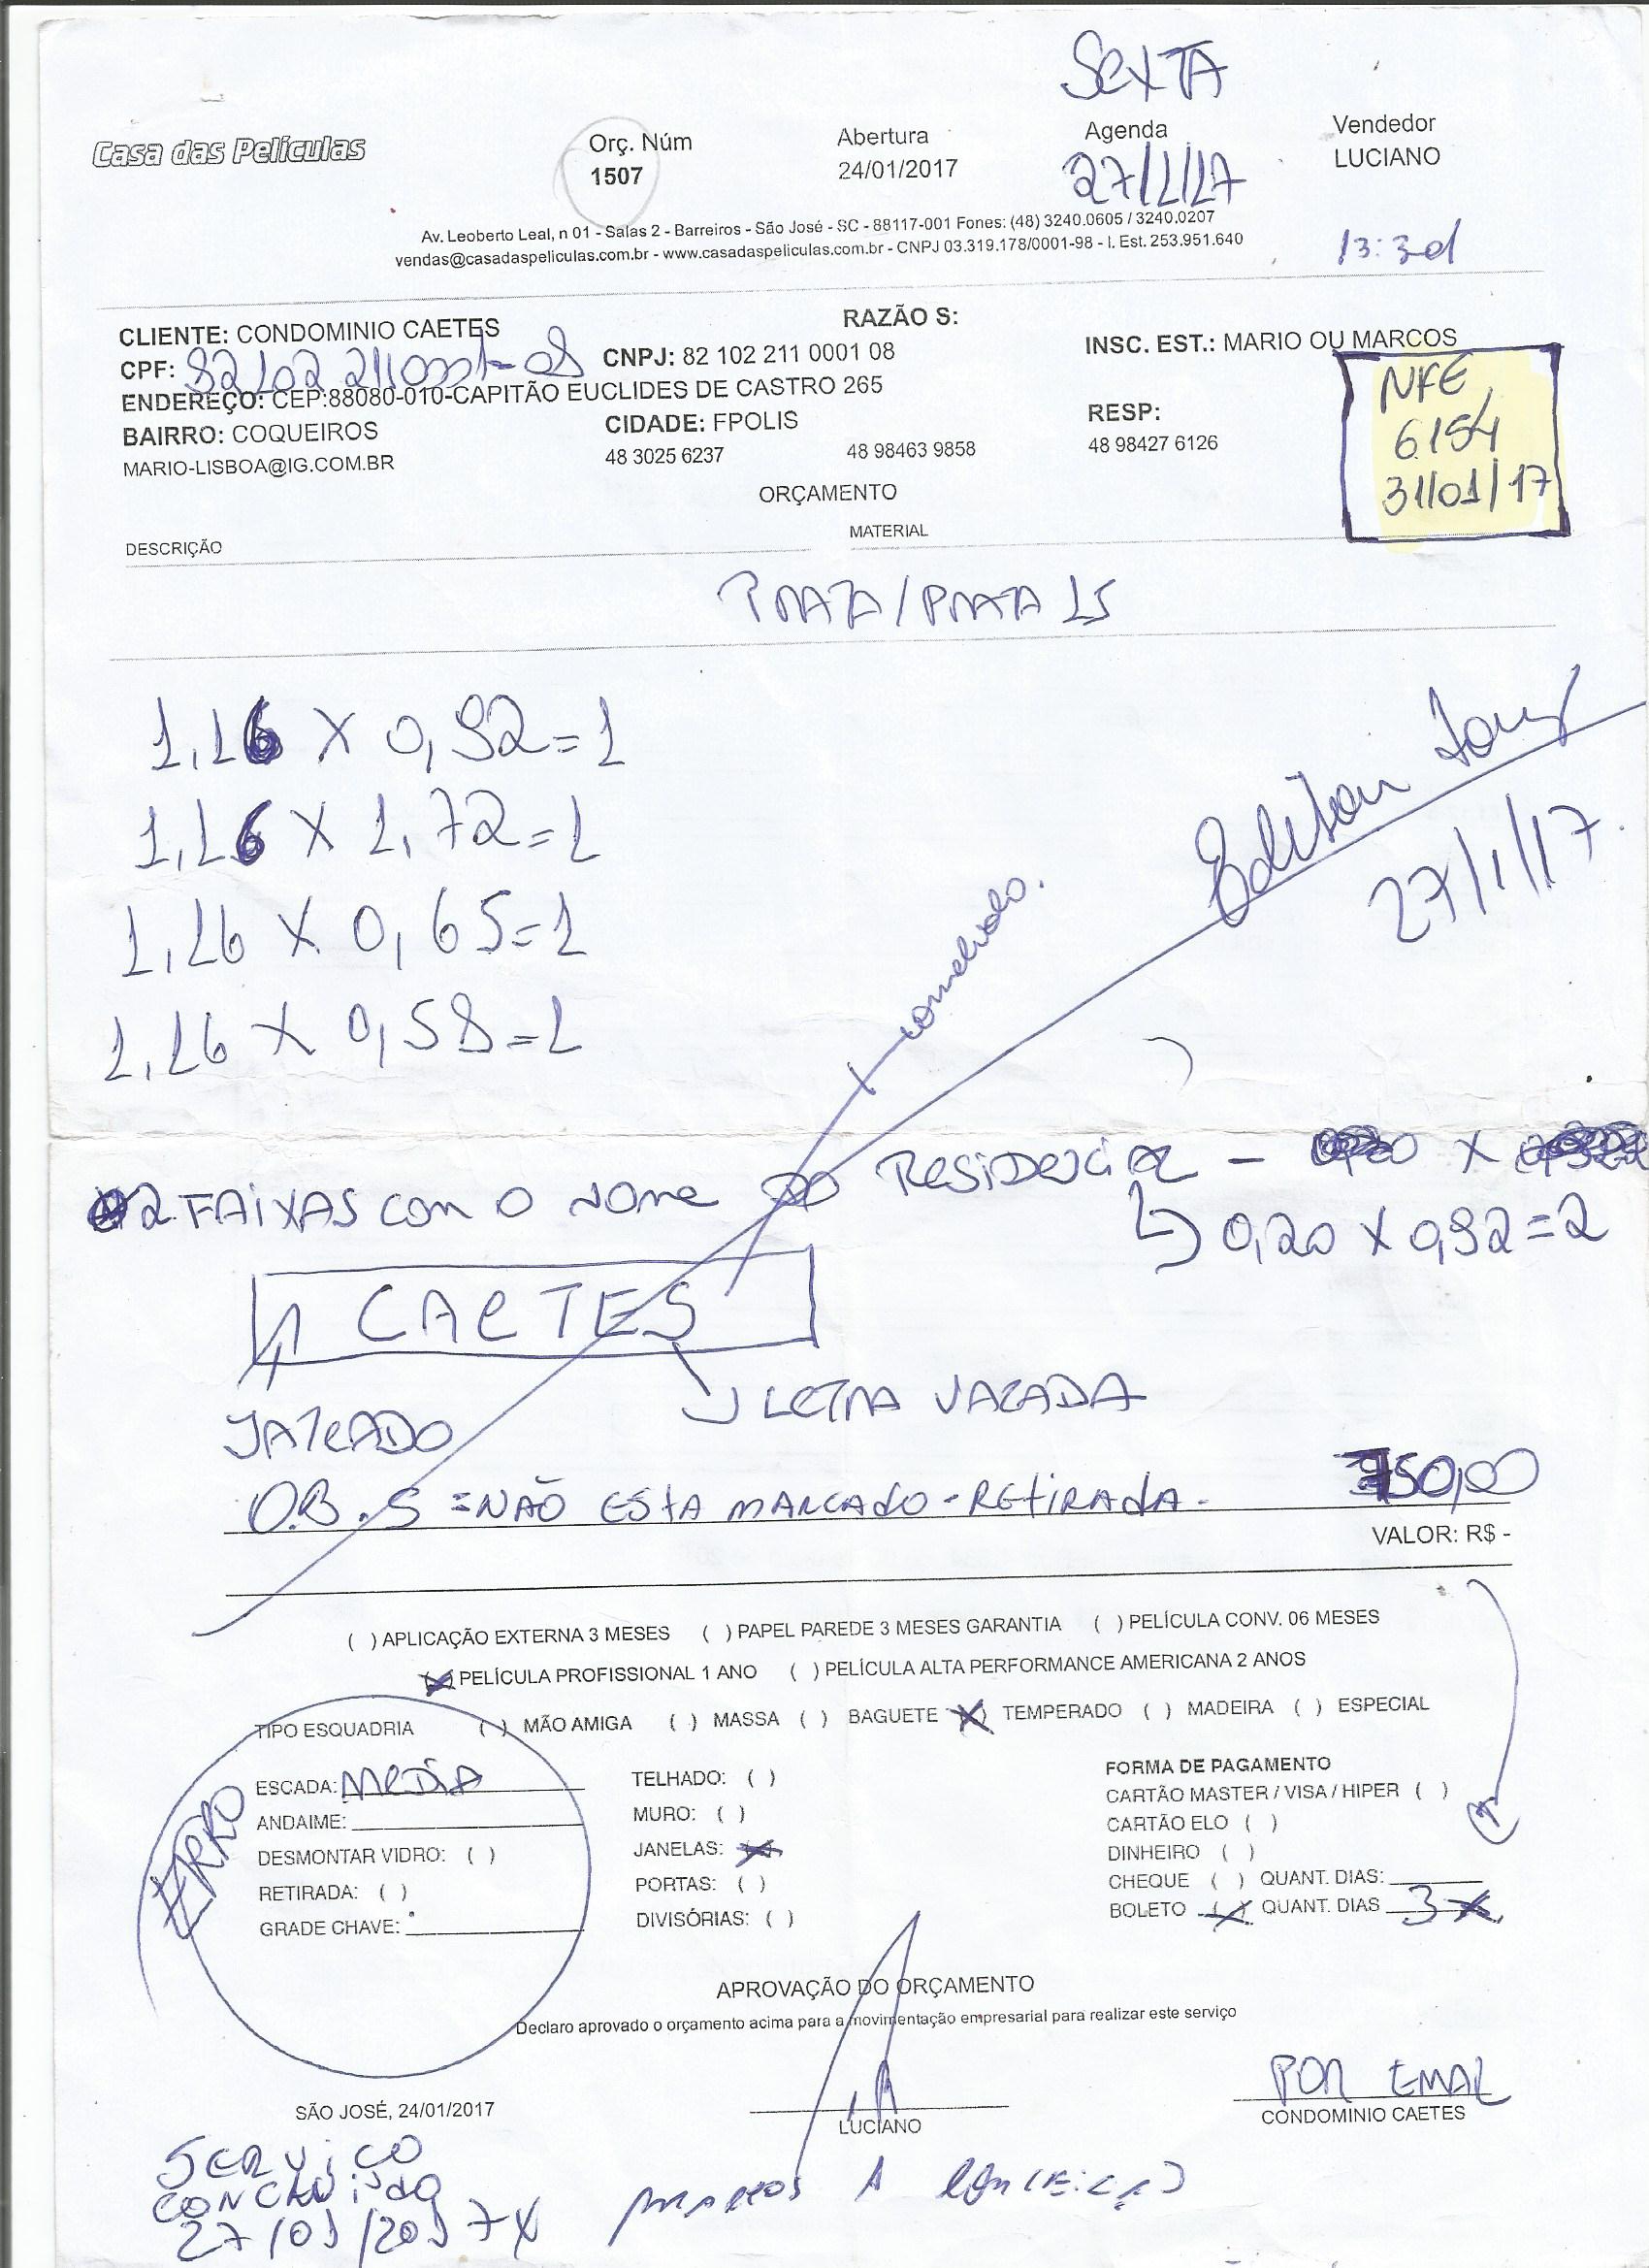 SEXTA
Casa das Películas
Orç. Núm Abertura Agenda Vendedor
1507 24/01/2017 27/1/17 LUCIANO
Av. Leoberto Leal, n 01 - Salas 2 - Barreiros - São José - SC - 88117-001 Fones: (48) 3240.0605 / 3240.0207
vendas@casadaspeliculas.com.br - www.casadaspeliculas.com.br - CNPJ 03.319.178/0001-98 - I. Est. 253.951.640
13:30
CLIENTE: CONDOMINIO CAETES RAZÃO S:
CPF: 82102211 0001-08 CNPJ: 82 102 211 0001 08 INSC. EST.: MARIO OU MARCOS
ENDEREÇO: CEP:88080-010-CAPITÃO EUCLIDES DE CASTRO 265
BAIRRO: COQUEIROS CIDADE: FPOLIS RESP:
MARIO-LISBOA@IG.COM.BR 48 3025 6237 48 98463 9858 48 98427 6126
NFE
6154
31/01/17
ORÇAMENTO
DESCRIÇÃO MATERIAL
PRATA/PRATA 15
1,16 X 0,92=1
1,16 X 1,72=1
1,16 X 0,65=1
1,16 X 0,58=1
Edilson
27/1/17.
2 FAIXAS COM O NOME DO RESIDENCIAL - X
0,20 X 0,92=2
CAETES
JATEADO
LETRA VAZADA
O.B.S = NÃO ESTA MARCADO - RETIRADA. 750,00
VALOR: R$ -
( ) APLICAÇÃO EXTERNA 3 MESES ( ) PAPEL PAREDE 3 MESES GARANTIA ( ) PELÍCULA CONV. 06 MESES
(X) PELÍCULA PROFISSIONAL 1 ANO ( ) PELÍCULA ALTA PERFORMANCE AMERICANA 2 ANOS
TIPO ESQUADRIA ( ) MÃO AMIGA ( ) MASSA ( ) BAGUETE (X) TEMPERADO ( ) MADEIRA ( ) ESPECIAL
ESCADA: MEDIA TELHADO: ( ) FORMA DE PAGAMENTO
ANDAIME: MURO: ( ) CARTÃO MASTER / VISA / HIPER ( )
DESMONTAR VIDRO: ( ) JANELAS: (X) CARTÃO ELO ( )
RETIRADA: ( ) PORTAS: ( ) DINHEIRO ( )
GRADE CHAVE: DIVISÓRIAS: ( ) CHEQUE ( ) QUANT. DIAS:
BOLETO (X) QUANT. DIAS 3X
ERRO
APROVAÇÃO DO ORÇAMENTO
Declaro aprovado o orçamento acima para a movimentação empresarial para realizar este serviço
POR EMAIL
SÃO JOSÉ, 24/01/2017 LUCIANO CONDOMINIO CAETES
SERVIÇO
CONCLUIDO
27/01/2017 X